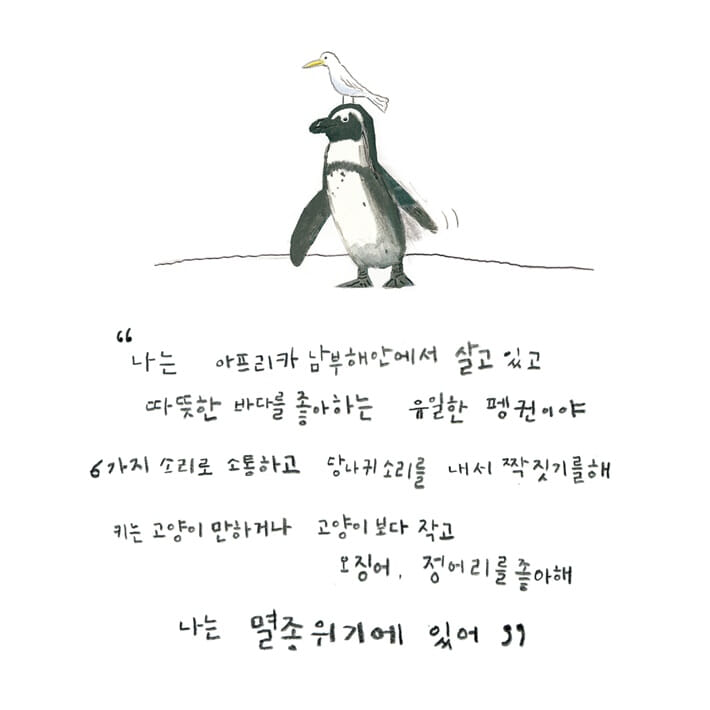 “나는 아프리카 남부해안에서 살고 있고
따뜻한 바다를 좋아하는 유일한 펭귄이야
6가지 소리로 소통하고 당나귀소리를 내서 짝짓기를해
키는 고양이 만하거나 고양이보다 작고
오징어, 정어리를 좋아해
나는 멸종위기에 있어”